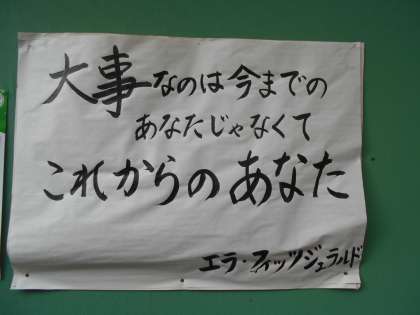 大事なのは今までの
あなたじゃなくて
これからのあなた
エラ・フィッツジェラルド